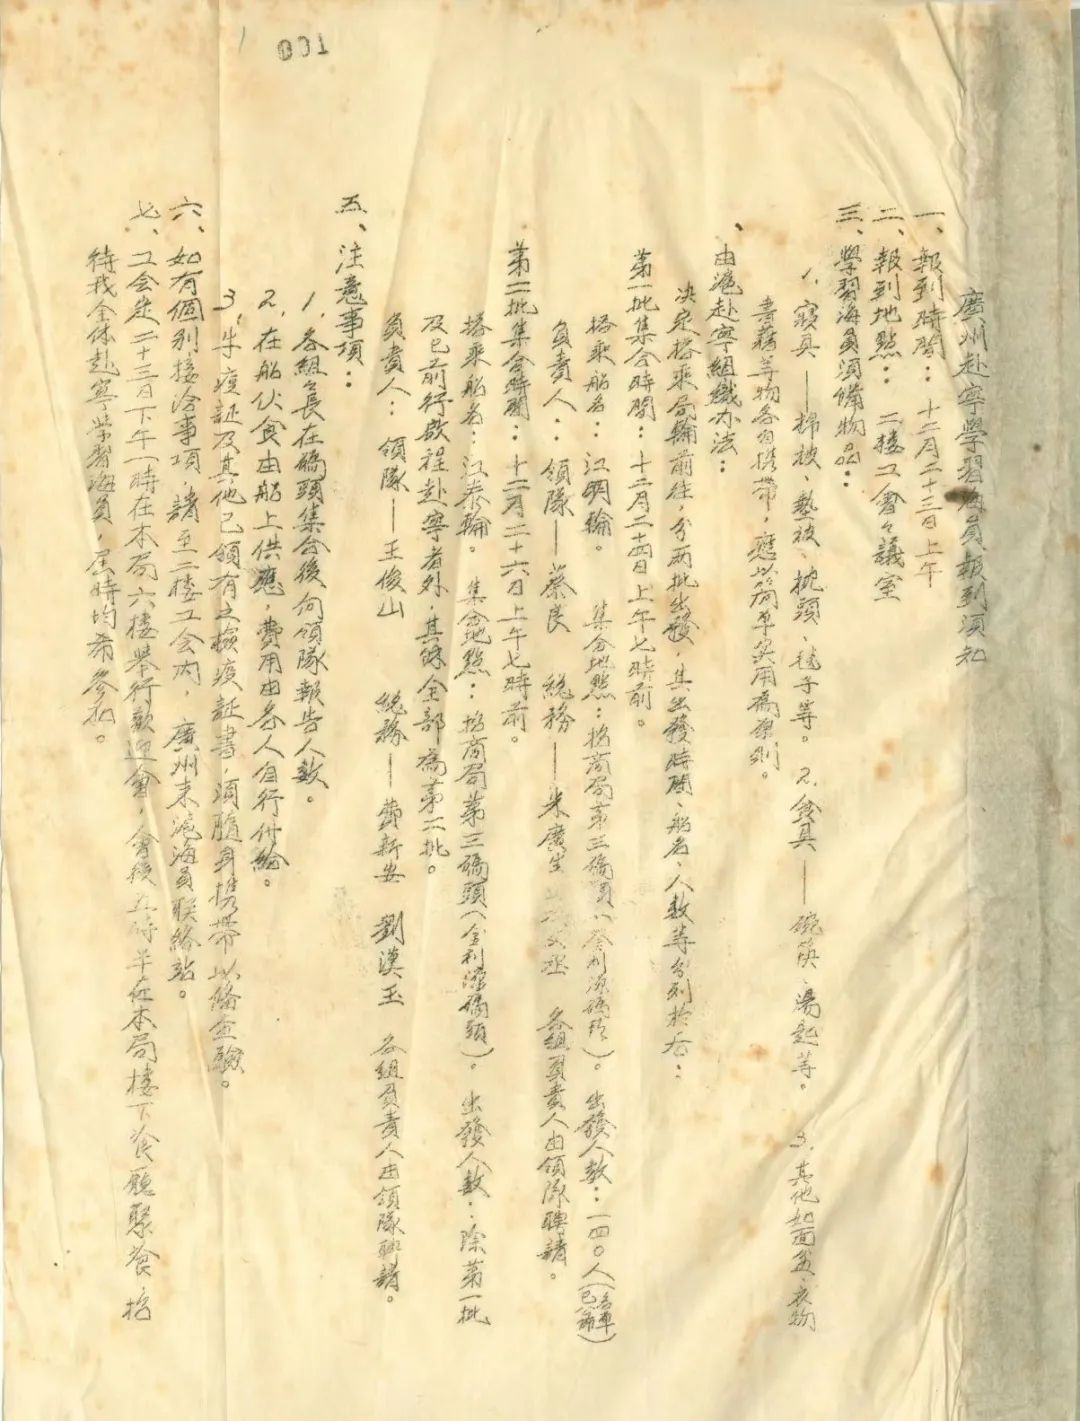 001
廣州赴寧學習海員報到須知
一、報到時間：十二月二十三日上午
二、報到地點：二樓工會々議室
三、學習海員須備物品：
1、寢具——棉被、墊被、枕頭、毯子等。2、食具——碗筷、湯匙等。3、其他如面盆、衣物
書籍等物各自携帶，應以簡单实用為原則。
、由滬赴寧組織办法：
决定搭乘局輪前往，分兩批出發，其出發時間、船名、人数等分列於后：
第一批集合時間：十二月二十四日上午七時前。
搭乘船名：江明輪。集合地點：招商局第三碼頭（金利源碼頭）。出發人数：一四〇人（名单已佈）
負責人：領隊——蔡良 總務——朱廣生 各組負責人由領隊聘請。
第二批集合時間：十二月二十六日上午七時前。
搭乘船名：江泰輪。集合地點：招商局第三碼頭（金利源碼頭）。出發人数：除第一批
及已前行啟程赴寧者外，其餘全部為第二批。
負責人：領隊——王俊山 總務——費新安 劉漢玉 各組負責人由領隊聘請。
五、注意事項：
1、各組々長在碼頭集合後向領隊報告人数。
2、在船伙食由船上供應，費用由各人自行付給。
3、牛痘証及其他已領有之檢疫証書，須隨身携帶以備查驗。
六、如有個别接洽事項，請至二樓工会内，廣州来滬海員联絡站。
七、工会定二十三日下午一時在本局六樓举行歡迎會，會後五時半在本局樓下飡廳聚飡，招
待我全体赴寧學習海員，屆時均希參加。